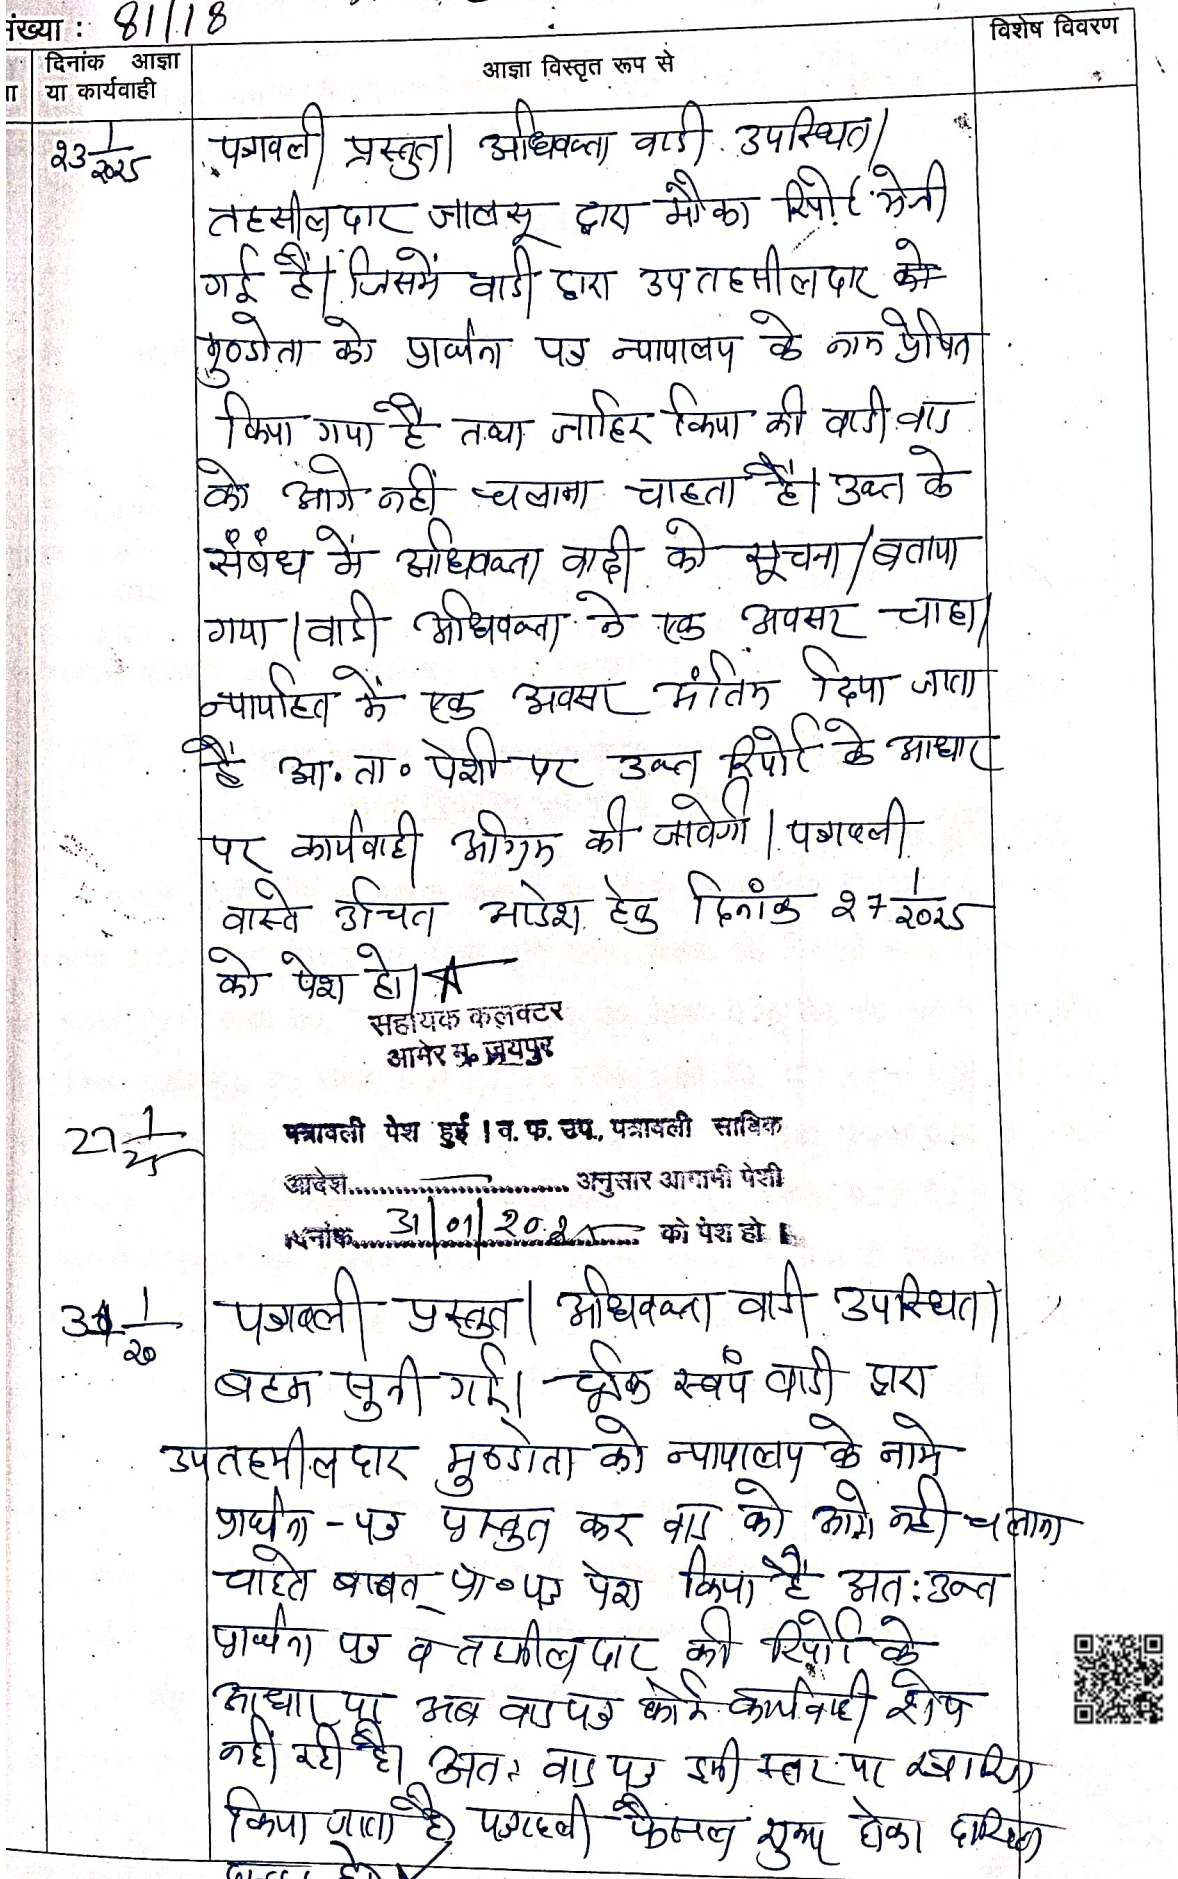 संख्या : 81/18
विशेष विवरण
दिनांक आज्ञा
या कार्यवाही
आज्ञा विस्तृत रूप से
23 1/2025
पत्रावली प्रस्तुत। अधिवक्ता वादी उपस्थित।
तहसीलदार जालसू द्वारा मौका रिपोर्ट भेजी
गई है। जिसमें वादी द्वारा उपतहसीलदार को
मुण्डोता को प्रार्थना पत्र न्यायालय के नाम प्रेषित
किया गया है तथा जाहिर किया की वादी वाद
को आगे नहीं चलाना चाहता है। उक्त के
संबंध में अधिवक्ता वादी को सूचना/बताया
गया। वादी अधिवक्ता ने एक अवसर चाहा।
न्यायहित में एक अवसर अंतिम दिया जाता
है आ. ता० पेशी पर उक्त रिपोर्ट के आधार
पर कार्यवाही अग्रिम की जावेगी। पत्रावली
वास्ते उचित आदेश हेतु दिनांक 27 1/2025
को पेश हो।
सहायक कलक्टर
आमेर मु. जयपुर
27 1/25
पत्रावली पेश हुई। व. फ. उप., पत्रावली साबिक
आदेश.............................. अनुसार आगामी पेशी
दिनांक 31/01/2025 को पेश हो।
31 1/20
पत्रावली प्रस्तुत। अधिवक्ता वादी उपस्थित।
बहस सुनी गई। चूंकि स्वयं वादी द्वारा
उपतहसीलदार मुण्डोता को न्यायालय के नामे
प्रार्थना-पत्र प्रस्तुत कर वाद को आगे नहीं चलाना
चाहते बाबत् प्रा०पत्र पेश किया है अत: उक्त
प्रार्थना पत्र व तहसीलदार की रिपोर्ट के
आधार पर अब वाद पत्र कोई कार्यवाही शेष
नहीं रही है। अत: वाद पत्र इसी स्तर पर खारिज
किया जाता है पत्रावली फैसल शुमार होकर दाखिल